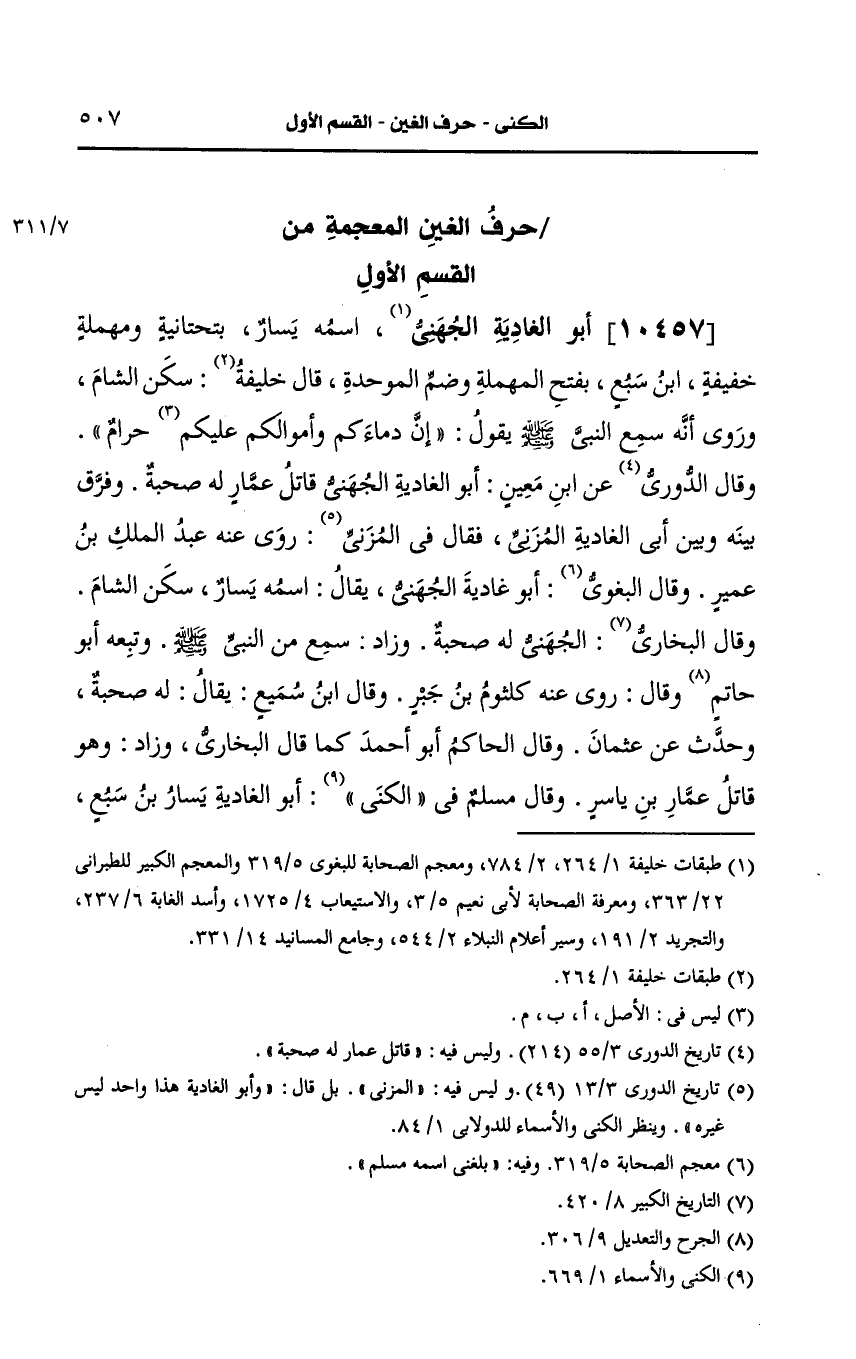 الكنى - حرف الغين - القسم الأول ٥٠٧
/حرفُ الغينِ المعجمةِ من ٣١١/٧
القسمِ الأولِ
[١٠٤٥٧] أبو الغادِيَةِ الجُهَنِىُّ(١) ، اسمُه يَسارٌ ، بتحتانيةٍ ومهملةٍ
خفيفةٍ ، ابنُ سَبُعٍ ، بفتحِ المهملةِ وضمِّ الموحدةِ ، قال خليفةُ(٢) : سكَن الشامَ ،
ورَوى أنَّه سمِع النبىَّ ﷺ يقولُ : « إنَّ دماءَكم وأموالَكم عليكم(٣) حرامٌ » .
وقال الدُّورىُّ(٤) عن ابنِ مَعِينٍ : أبو الغاديةِ الجُهَنىُّ قاتلُ عمَّارٍ له صحبةٌ . وفرَّق
بينَه وبين أبى الغاديةِ المُزَنِىِّ ، فقال فى المُزَنىِّ(٥) : روَى عنه عبدُ الملكِ بنُ
عميرٍ . وقال البغوىُّ(٦) : أبو غاديةَ الجُهَنىُّ ، يقالُ : اسمُه يَسارٌ ، سكَن الشامَ .
وقال البخارىُّ(٧) : الجُهَنىُّ له صحبةٌ . وزاد : سمِع من النبىِّ ﷺ . وتبِعه أبو
حاتمٍ(٨) وقال : روى عنه كلثومُ بنُ جَبْرٍ . وقال ابنُ سُمَيعٍ : يقالُ : له صحبةٌ ،
وحدَّث عن عثمانَ . وقال الحاكمُ أبو أحمدَ كما قال البخارىُّ ، وزاد : وهو
قاتلُ عمَّارِ بنِ ياسرٍ . وقال مسلمٌ فى « الكنَى »(٩) : أبو الغاديةِ يَسارُ بنُ سَبُعٍ ،
(١) طبقات خليفة ١/ ٢٦٤، ٢/ ٧٨٤، ومعجم الصحابة للبغوى ٣١٩/٥ والمعجم الكبير للطبرانى
٢٢/ ٣٦٣، ومعرفة الصحابة لأبى نعيم ٣/٥، والاستيعاب ٤/ ١٧٢٥، وأسد الغابة ٦/ ٢٣٧،
والتجريد ٢/ ١٩١، وسير أعلام النبلاء ٢/ ٥٤٤، وجامع المسانيد ١٤/ ٣٣١.
(٢) طبقات خليفة ١/ ٢٦٤.
(٣) ليس فى : الأصل ، أ ، ب ، م .
(٤) تاريخ الدورى ٥٥/٣ (٢١٤) . وليس فيه : « قاتل عمار له صحبة » .
(٥) تاريخ الدورى ١٣/٣ (٤٩) .و ليس فيه : « المزنى » . بل قال : « وأبو الغادية هذا واحد ليس
غيره » . وينظر الكنى والأسماء للدولابى ١/ ٨٤.
(٦) معجم الصحابة ٣١٩/٥. وفيه: « بلغنى اسمه مسلم » .
(٧) التاريخ الكبير ٨/ ٤٢٠.
(٨) الجرح والتعديل ٩/ ٣٠٦.
(٩) الكنى والأسماء ١/ ٦٦٩.